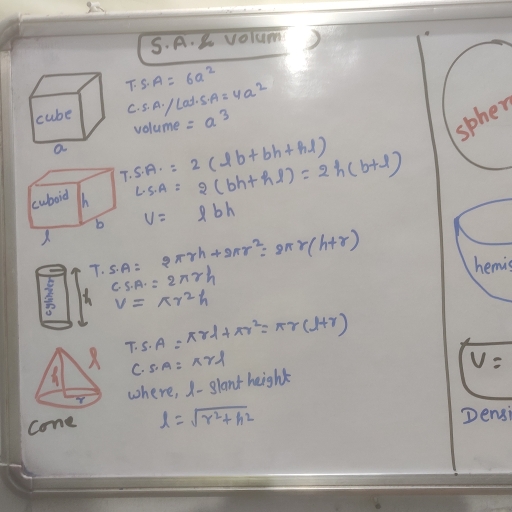 S.A. & Volum
cube
a
T.S.A = 6a²
C.S.A./Lat.S.A = 4a²
volume = a³
cuboid
h
l
b
T.S.A. = 2(lb+bh+hl)
L.S.A = 2(bh+hl) = 2h(b+l)
V = lbh
cylinder
h
T.S.A = 2πrh+2πr² = 2πr(h+r)
C.S.A. = 2πrh
V = πr²h
h
l
r
cone
T.S.A = πrl+πr² = πr(l+r)
C.S.A = πrl
where, l- slant height
l = √r²+h²
spher
hemis
V =
Densi